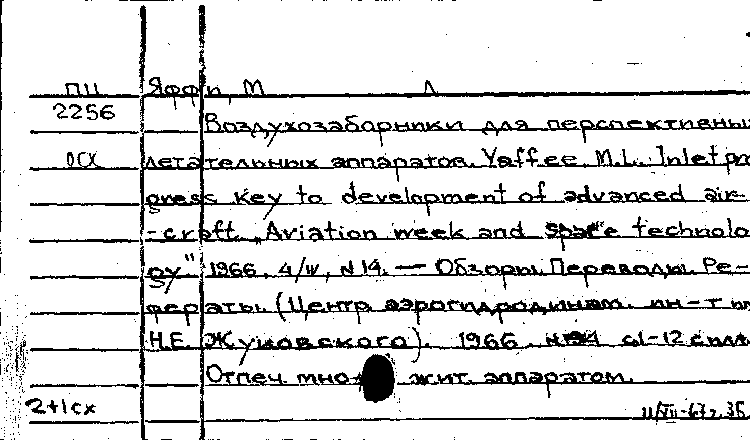 ПЦ Яффи, М Л
2256
Воздухозаборники для перспективны
ОСХ летательных аппаратов. Yaffee M.L. Inlet pro
gress key to development of advanced air-
-craft. „Aviation week and space technolo
gy" 1966, 4/IV, N 14. — Обзоры. Переводы. Ре-
фераты. (Центр. аэрогидродинам. ин-т им
Н.Е. Жуковского). 1966 с1-12 с илл.
Отпеч. множит. аппаратом.
2+1сх